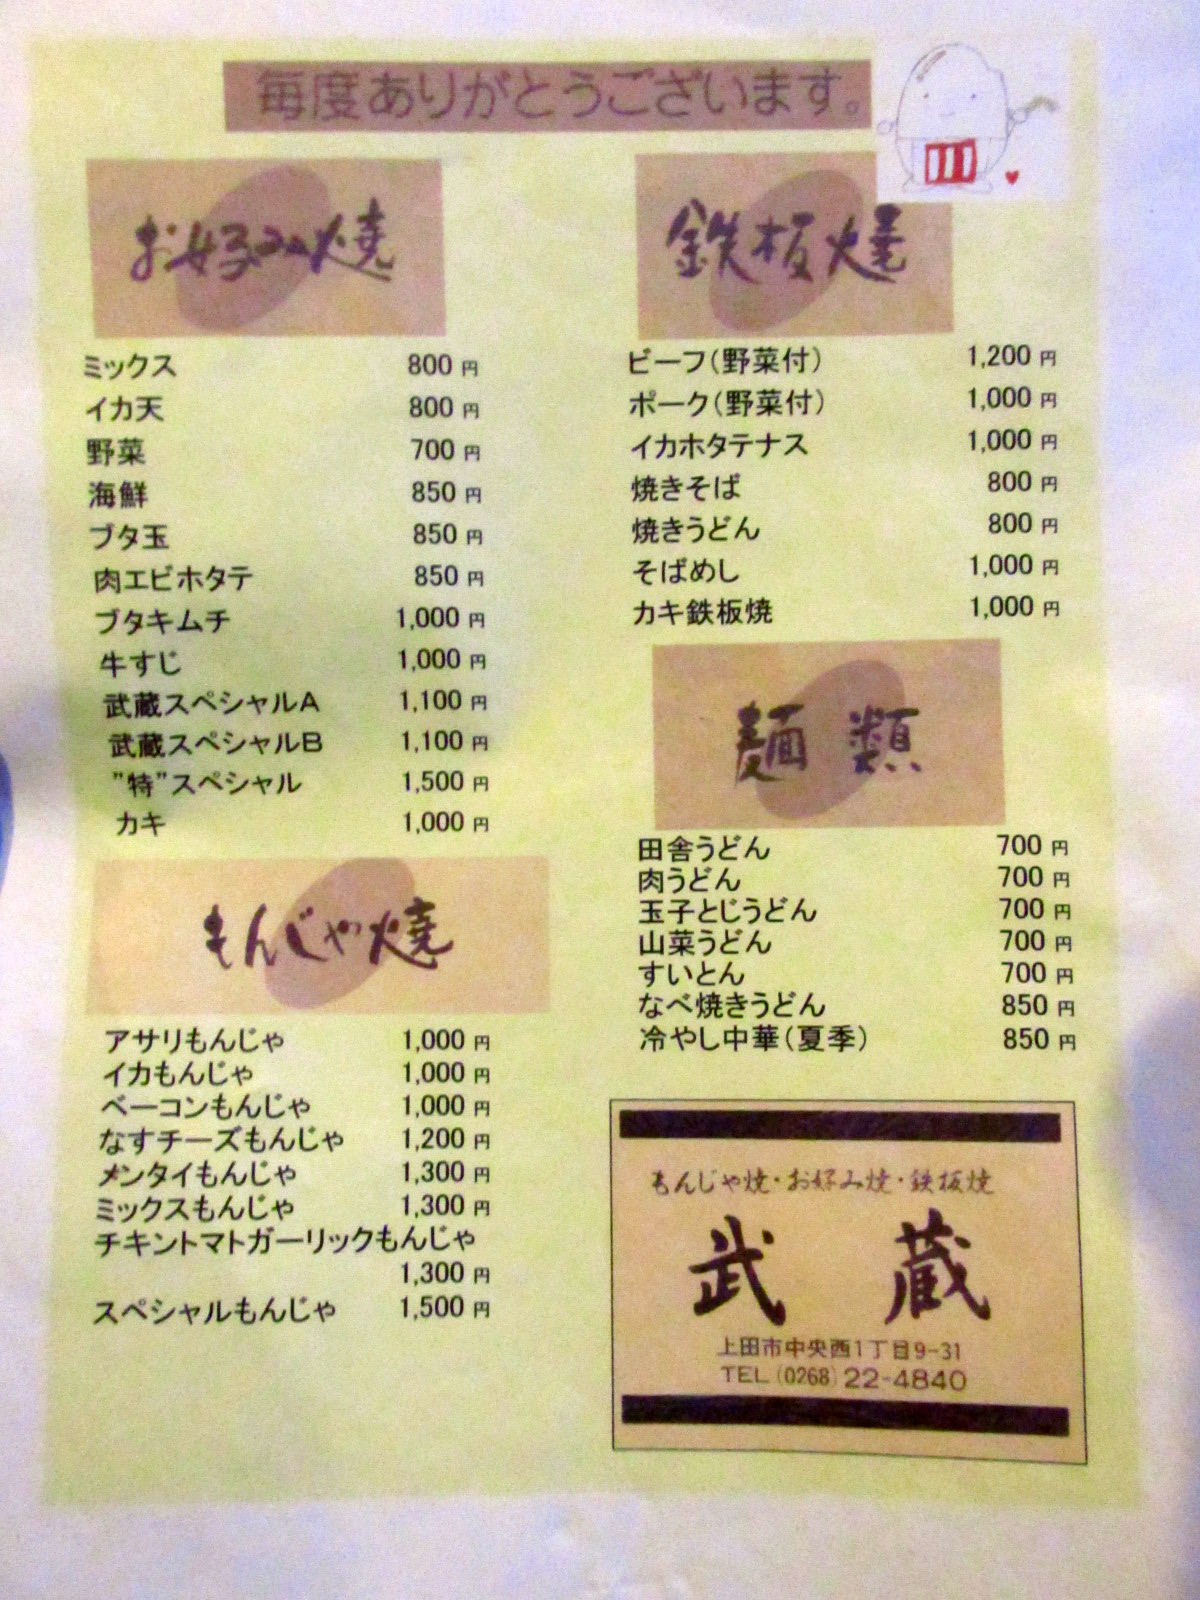 毎度ありがとうございます。
お好み焼
ミックス 800 円
イカ天 800 円
野菜 700 円
海鮮 850 円
ブタ玉 850 円
肉エビホタテ 850 円
ブタキムチ 1,000 円
牛すじ 1,000 円
武蔵スペシャルA 1,100 円
武蔵スペシャルB 1,100 円
"特"スペシャル 1,500 円
カキ 1,000 円
もんじゃ焼
アサリもんじゃ 1,000 円
イカもんじゃ 1,000 円
ベーコンもんじゃ 1,000 円
なすチーズもんじゃ 1,200 円
メンタイもんじゃ 1,300 円
ミックスもんじゃ 1,300 円
チキントマトガーリックもんじゃ
1,300 円
スペシャルもんじゃ 1,500 円
鉄板焼
ビーフ(野菜付) 1,200 円
ポーク(野菜付) 1,000 円
イカホタテナス 1,000 円
焼きそば 800 円
焼きうどん 800 円
そばめし 1,000 円
カキ鉄板焼 1,000 円
麺類
田舎うどん 700 円
肉うどん 700 円
玉子とじうどん 700 円
山菜うどん 700 円
すいとん 700 円
なべ焼きうどん 850 円
冷やし中華(夏季) 850 円
もんじゃ焼・お好み焼・鉄板焼
武蔵
上田市中央西1丁目9-31
TEL(0268)22-4840